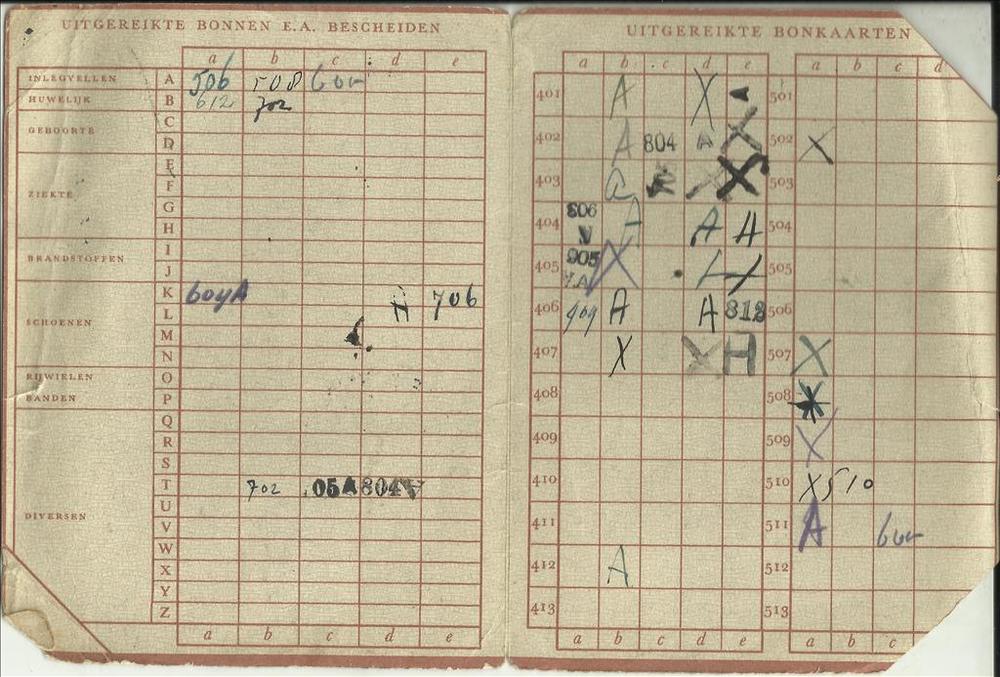 UITGEREIKTE BONNEN E.A. BESCHEIDEN
a b c d e
INLEGVELLEN A 506 508 600
HUWELIJK B 612 702
C
GEBOORTE
D
E
ZIEKTE F
G
H
BRANDSTOFFEN I
J
K 604A
L H 706
SCHOENEN
M
N
RIJWIELEN O
BANDEN P
Q
R
S
T 702 05A 804V
DIVERSEN U
V
W
X
Y
Z
a b c d e
UITGEREIKTE BONKAARTEN
a b c d e a b c d
401 A X A 501
402 A 804 A X 502 X
403 a X X 503
404 806 V A A A 504
405 905 X 505
406 909 A A 812 506
407 X X H 507 X
408 508
409 509 X
410 510 X 510
411 511 A 600
412 A 512
413 513
a b c d e a b c d